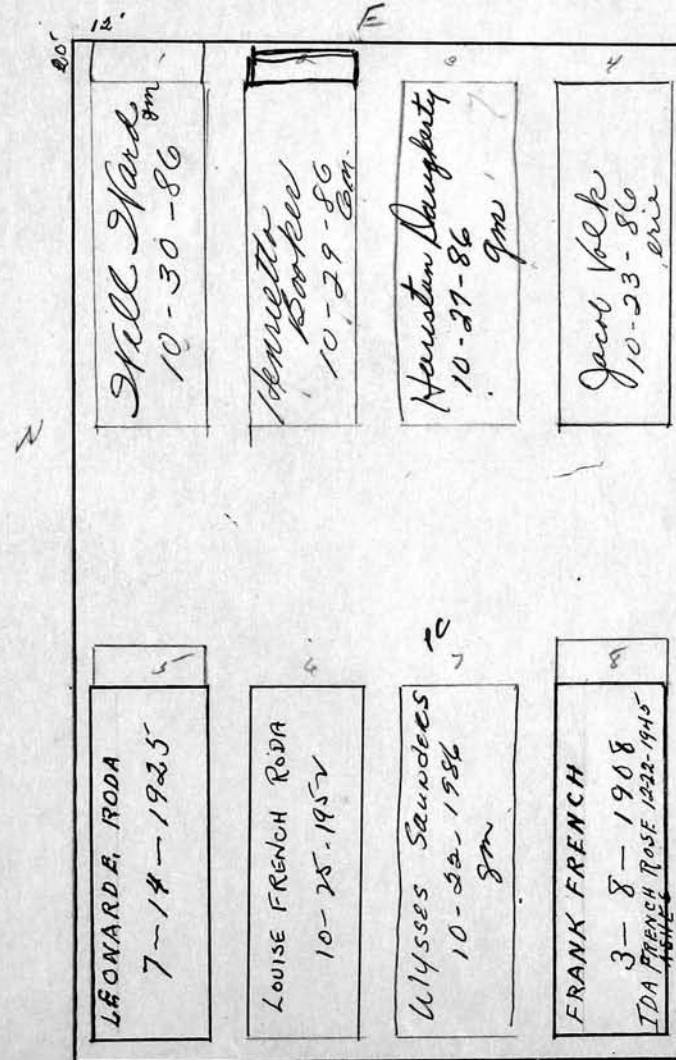 12'
E
20'
1
Will Ward
gm
10-30-86
2
Henrietta
Booker
10-29-86
Gm.
3
Haustun Daugherty
10-27-86
gm
4
Jacob Volk
10-23-86
erie
N
5
LEONARD E. RODA
7-14-1925
6
LOUISE FRENCH RODA
10-25-1952
7
Ulysses Saunders
10-22-1986
gm
8
FRANK FRENCH
3-8-1908
IDA FRENCH ROSE 12-22-1945
ASHES